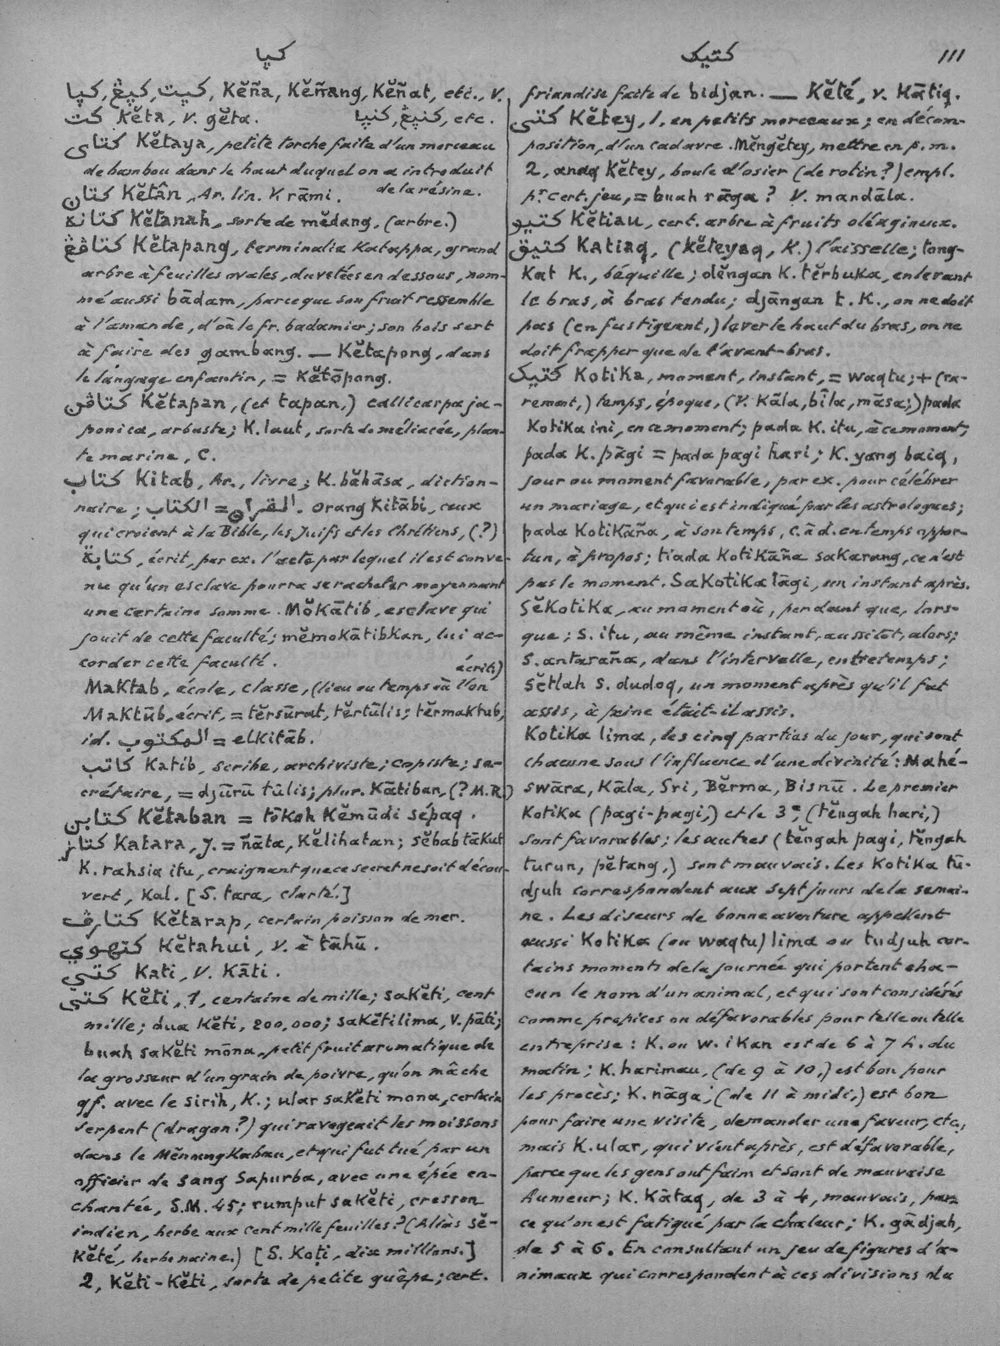 كيا
كتيک
111
كيا, كيڠ, كيت, Kĕña, Kĕñang, Kĕñat, etc., v.
كت Kĕta, v. gĕta. كنيڠ, كنيا, etc.
كتاى Kĕtaya, petite torche faite d'un morceau
de bambou dans le haut duquel on a introduit
de la résine.
كتان Kĕtân, Ar. lin. V rāmi.
كتانه Kĕtanah, sorte de mĕdang, (arbre.)
كتاڤڠ Kĕtapang, terminalia Katappa, grand
arbre à feuilles ovales, duvetées en dessous, nom-
mé aussi bādam, parce que son fruit ressemble
à l'amande, d'où le fr. badamier; son bois sert
à faire des gambang. — Kĕtapong, dans
le langage enfantin, = Kĕtōpong.
كتاڤن Kĕtapan, (et tapan,) callicarpa ja-
ponica, arbuste; K. laut, sorte de méliacée, plan-
te marine, C.
كتاب Kitab, Ar., livre; K. băhāsa, diction-
naire; الكتاب = القرآن. orang Kitābi, ceux
qui croient à la Bible, les Juifs et les Chrétiens, (?)
كتابة, écrit, par ex. l'acte par lequel il est conve-
nu qu'un esclave pourra se racheter moyennant
une certaine somme. Mŏkātib, esclave qui
jouit de cette faculté; mĕmokātibkan, lui ac-
corder cette faculté.
écrit)
Maktab, école, classe, (lieu ou temps où l'on
Maktūb, écrit, = tĕrsūrat, tĕrtūlis; tĕrmaktub,
id. المكتوب = elkitāb.
كاتب Katib, scribe, archiviste; copiste; se-
crétaire, = djūrū tūlis; plur. Kātiban, (? M.R.)
كتابن Kĕtaban = tōkoh Kĕmūdi sépaq.
كتار Katara, J. = ñāta, Kĕlihatan; sĕbab tākut
K. rahsia itu, craignant que ce secret ne soit décou-
vert, Kal. [S. tara, clarté.]
كتارڤ Kĕtarap, certain poisson de mer.
كتهوي Kĕtahui, v. à tāhū.
كتي Kati, v. Kāti.
كتي Kĕti, 1, centaine de mille; saKĕti, cent
mille; dua Kĕti, 200,000; saKĕti lima, v. pāti;
buah saKĕti māna, petit fruit aromatique de
la grosseur d'un grain de poivre, qu'on mâche
qf. avec le sirih, K.; ular saKĕti mona, certain
serpent (dragon?) qui ravageait les moissons
dans le MĕnangKabau, et qui fut tué par un
officier de sang Sapurba, avec une épée en-
chantée, S.M. 45; rumput saKĕti, cresson
indien, herbe aux cent mille feuilles? (Aliàs sĕ-
Kĕté, herbe naine.) [S. Koṭi, dix millions.]
2, Kĕti-Kĕti, sorte de petite guêpe; cert.
friandise faite de bidjan. — Kĕté, v. Kātiq.
كتى Kĕtey, 1, en petits morceaux; en décom-
position, d'un cadavre. Mĕngĕtey, mettre en p. m.
2, anaq Kĕtey, boule d'osier (de rotin?) empl.
pr. cert. jeu, = buah rāga? V. mandāla.
كتيو Kĕtiau, cert. arbre à fruits oléagineux.
كتيق Katiaq, (kĕteyaq, K.) l'aisselle; tong-
Kat K., béquille; olĕngan K. tĕrbuka, en levant
le bras, à bras tendu; djāngan t. K., on ne doit
pas (en fustigeant,) lever le haut du bras, on ne
doit frapper que de l'avant-bras.
كتيک KotiKa, moment, instant, = waqtu; + (ra-
rement,) temps, époque, (V. Kāla, bīla, māsa;) pada
KotiKa ini, en ce moment; pada K. itu, à ce moment;
pada K. pāgi = pada pagi hari; K. yang baiq,
jour ou moment favorable, par ex. pour célébrer
un mariage, et qui est indiqué par les astrologues;
pada KotiKāña, à son temps, c. à d. en temps oppor-
tun, à propos; tiada KotiKāña saKarang, ce n'est
pas le moment. SaKotiKa lāgi, un instant après.
SĕKotiKa, au moment où, pendant que, lors-
que; S. itu, au même instant, aussitôt, alors;
S. antaraña, dans l'intervalle, entretemps;
Sĕtlah S. dudoq, un moment après qu'il fut
assis, à peine était-il assis.
KotiKa lima, les cinq parties du jour, qui sont
chacune sous l'influence d'une divinité: Mahé-
swāra, Kāla, Sri, Bĕrma, Bisnū. Le premier
Kotika (pagi-pagi,) et le 3e, (tĕngah hari,)
sont favorables; les autres (tĕngah pagi, tĕngah
turun, pĕtang,) sont mauvais. Les KotiKa tū-
djuh correspondent aux sept jours de la semai-
ne. Les diseurs de bonne aventure appellent
aussi KotiKa (ou waqtu) lima ou tudjuh cer-
tains moments de la journée qui portent cha-
cun le nom d'un animal, et qui sont considérés
comme propices ou défavorables pour telle ou telle
entreprise: K. ou w. iKan est de 6 à 7 h. du
matin; K. harimau, (de 9 à 10,) est bon pour
les procès; K. nāga, (de 11 à midi,) est bon
pour faire une visite, demander une faveur, etc.,
mais K. ular, qui vient après, est défavorable,
parce que les gens ont faim et sont de mauvaise
humeur; K. Kātaq, de 3 à 4, mauvais, par-
ce qu'on est fatigué par la chaleur; K. gādjah,
de 5 à 6. En consultant un jeu de figures d'a-
nimaux qui correspondent à ces divisions du